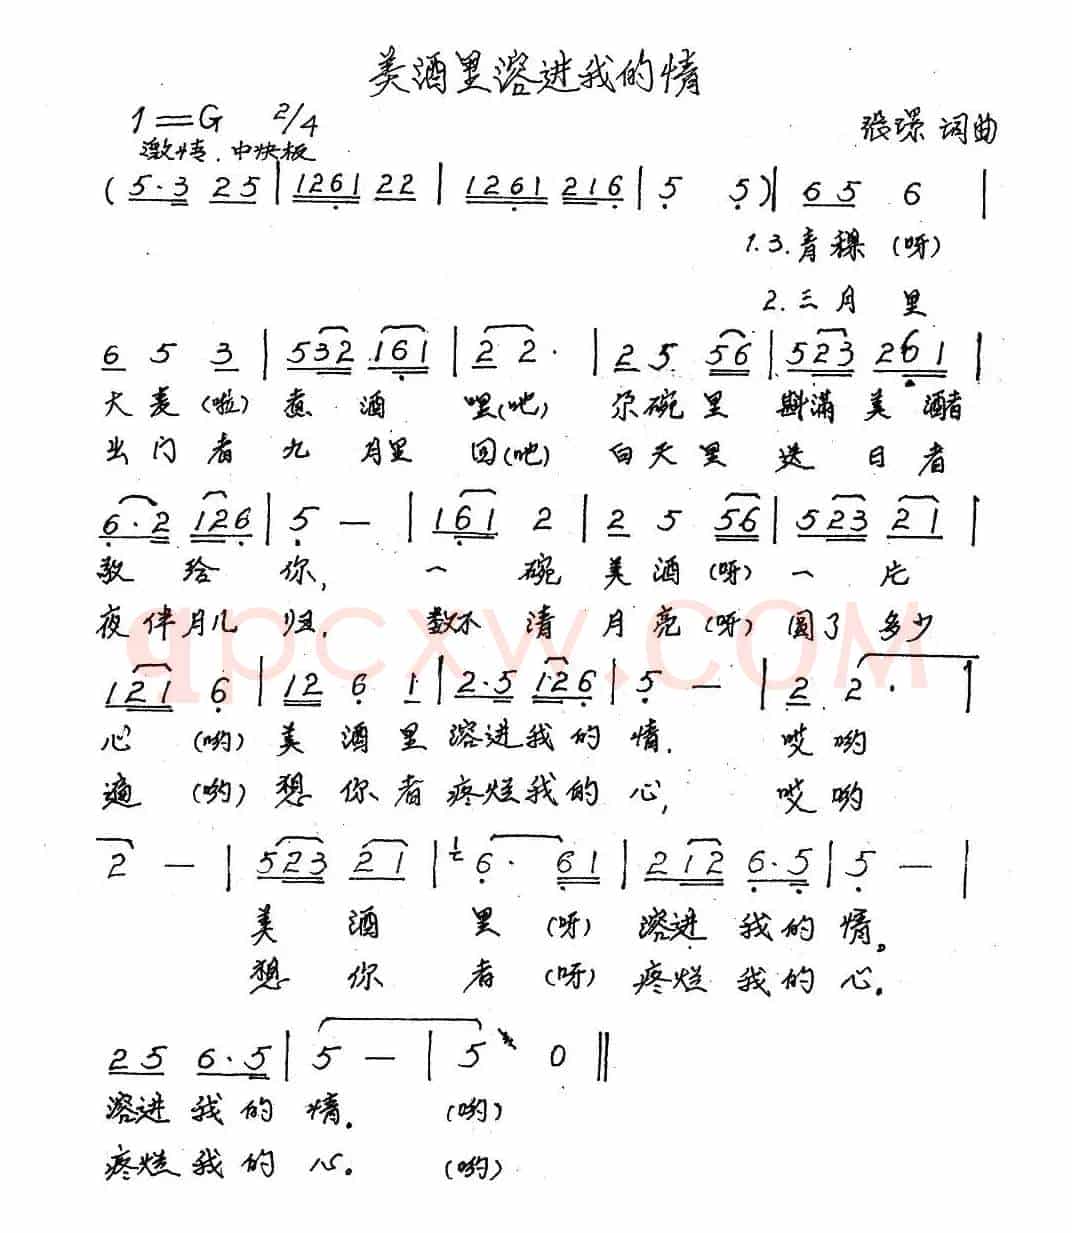 美酒里溶进我的情
1=G 2/4
张璟 词曲
激情.中快板
(5·3 25|1261 22|1261 216|5 5)|65 6|
1.3.青稞(呀)
2.三月里
6 5 3|532 161|2 2·|25 56|523 261|
大麦(啦)煮酒嘿(吔)尔碗里斟满美酒者
出门者九月里回(吔)白天里送日者
6·2 126|5 —|161 2|2 5 56|523 21|
敬给你,一碗美酒(呀)一片
夜伴月儿归,数不清月亮(呀)圆了多少
qpcxw.COM
121 6|12 6 1|2·5 126|5 —|2 2·|
心(哟)美酒里溶进我的情.哎哟
遍(哟)想你者疼烂我的心,哎哟
2 —|523 21|½6· 61|212 6·5|5 —|
美酒里(呀)溶进我的情。
想你者(呀)疼烂我的心.
25 6·5|5 —|5 0‖
溶进我的情.(哟)
疼烂我的心.(哟)